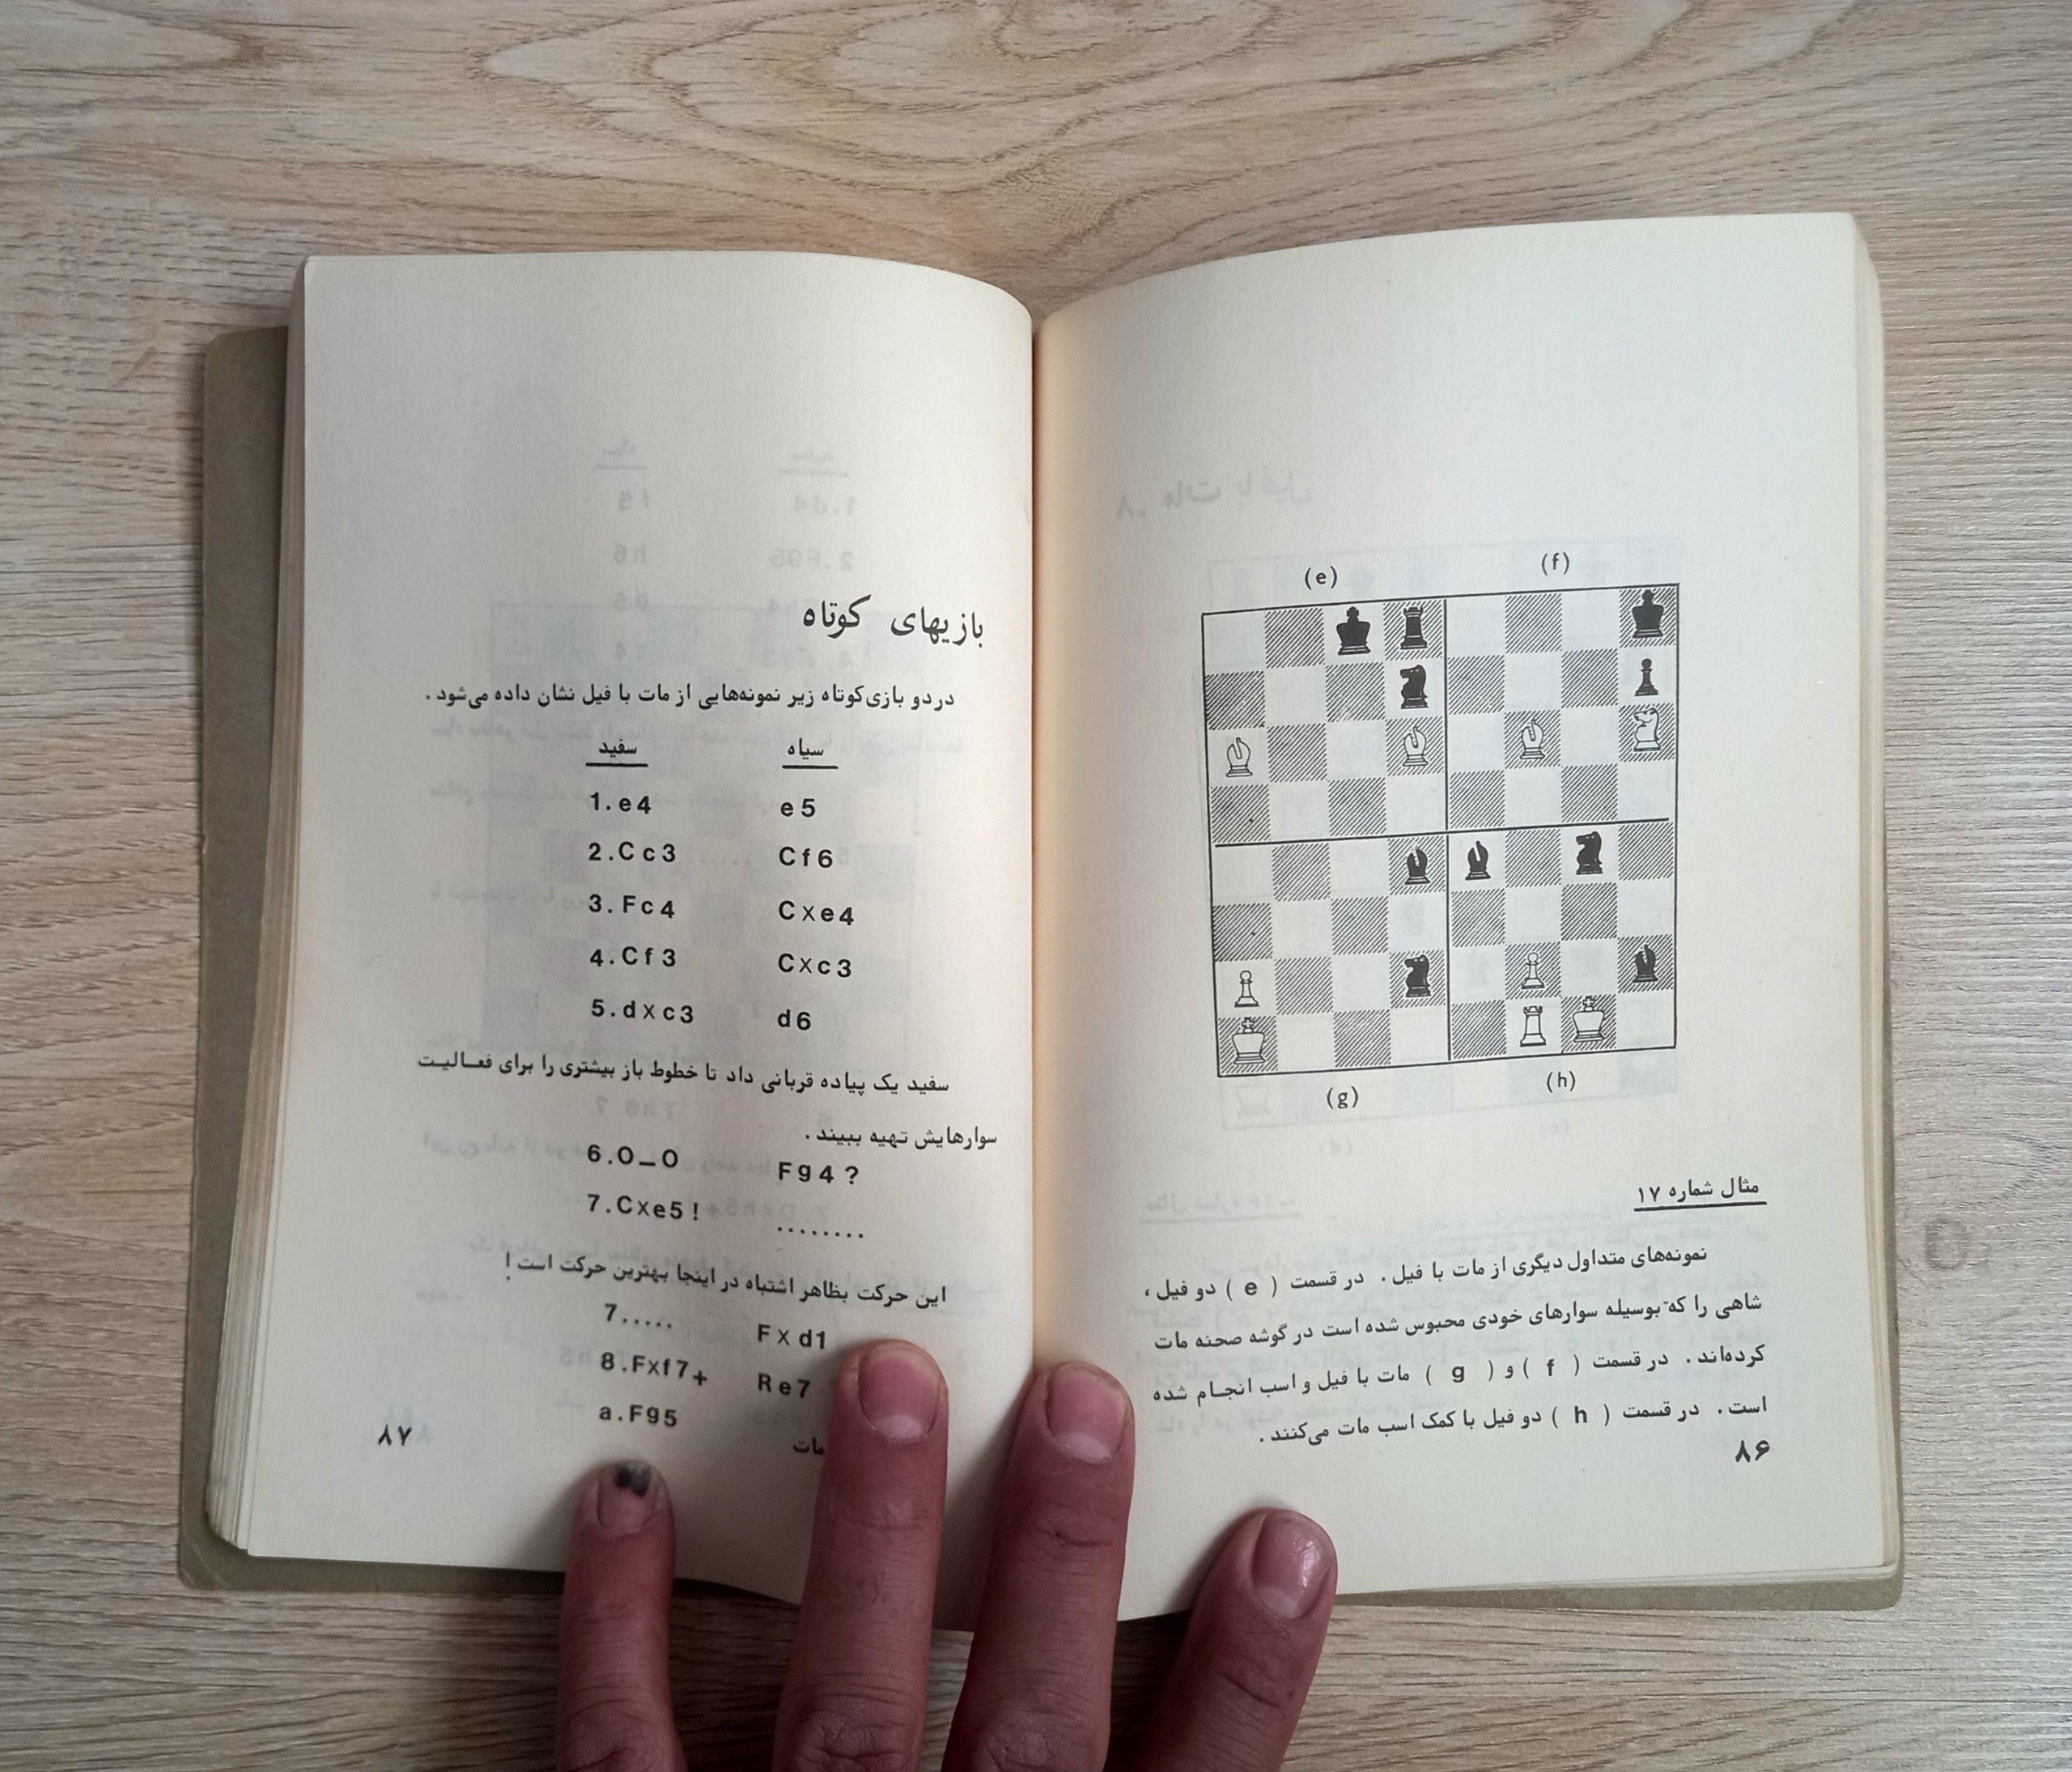 (e) (f)
(g) (h)
مثال شماره ۱۷
نمونه‌های متداول دیگری از مات با فیل . در قسمت ( e ) دو فیل ،
شاهی را که بوسیله سوارهای خودی محبوس شده است در گوشه صحنه مات
کرده‌اند . در قسمت ( f ) و ( g ) مات با فیل و اسب انجام شده
است . در قسمت ( h ) دو فیل با کمک اسب مات می‌کنند .
۸۶
بازیهای کوتاه
در دو بازی کوتاه زیر نمونه‌هایی از مات با فیل نشان داده می‌شود .
سفید سیاه
1. e4 e5
2. Cc3 Cf6
3. Fc4 Cxe4
4. Cf3 Cxc3
5. dxc3 d6
سفید یک پیاده قربانی داد تا خطوط باز بیشتری را برای فعالیت
سوارهایش تهیه ببیند .
6. O–O Fg4 ?
7. Cxe5 ! ........
این حرکت بظاهر اشتباه در اینجا بهترین حرکت است !
7..... Fxd1
8. Fxf7+ Re7
a. Fg5
مات
۸۷